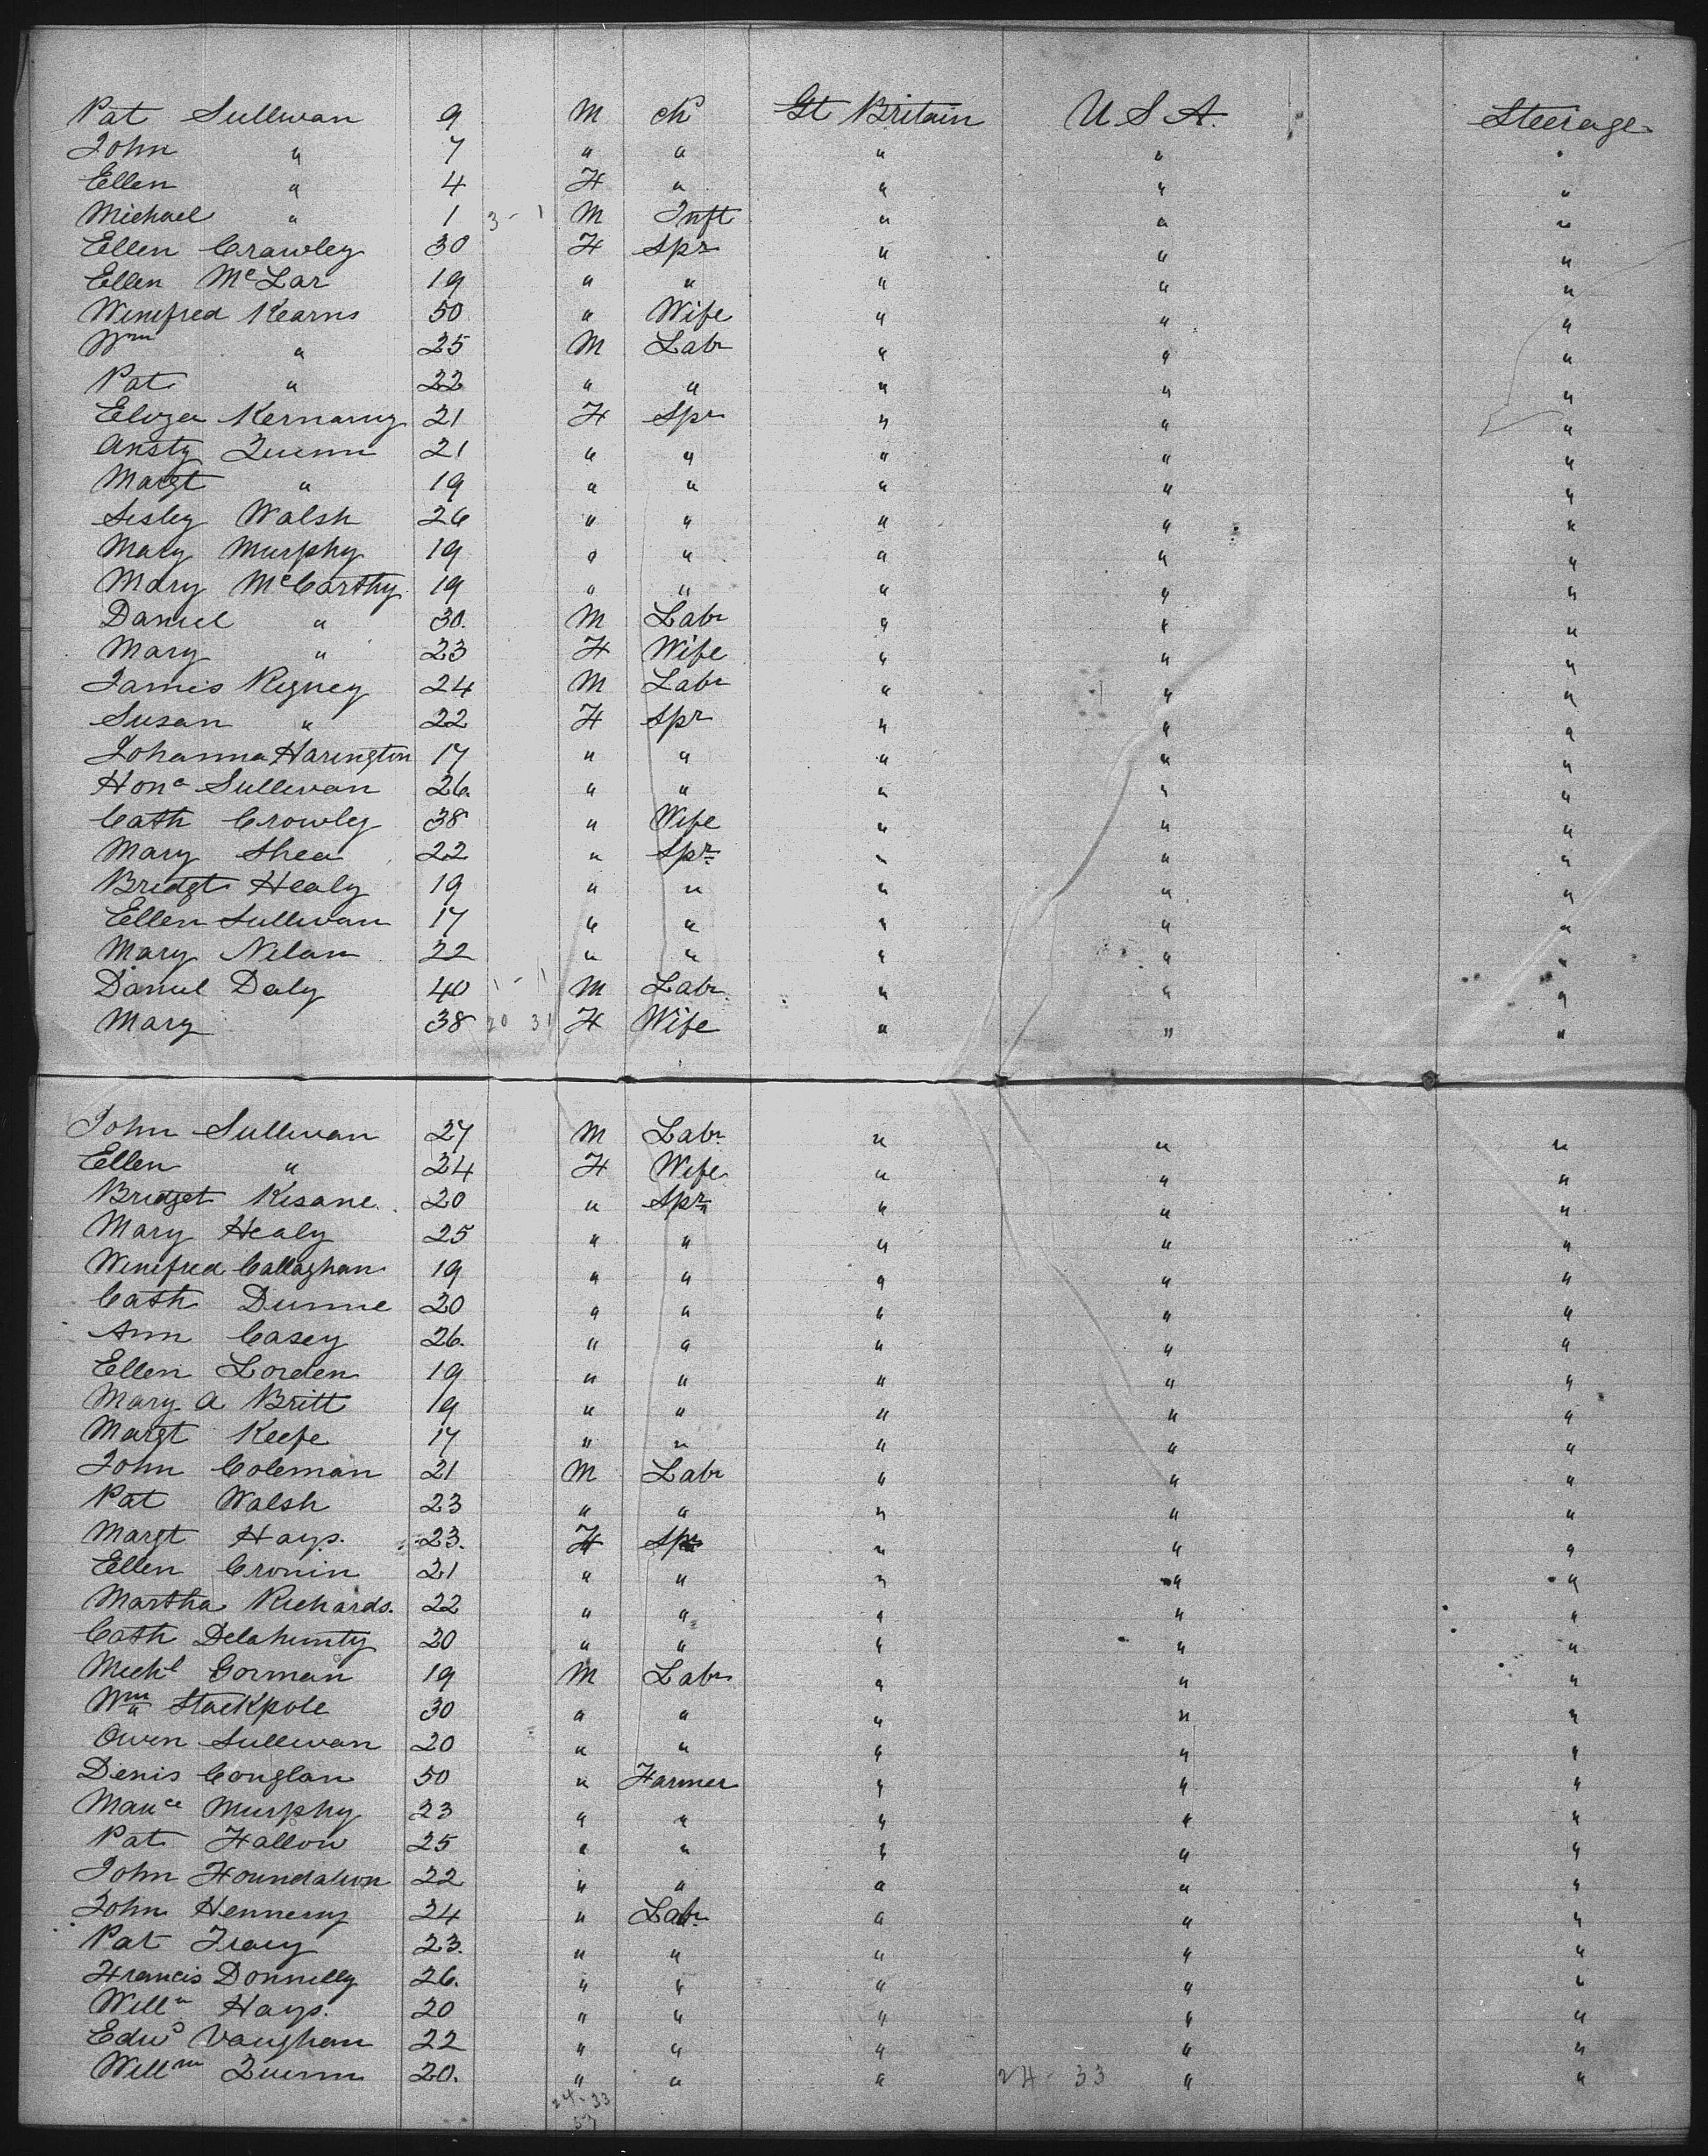 Pat Sullivan 9 M Ch Gt Britain U S A. Steerage
John " 7 " " " " "
Ellen " 4 F " " " "
Michael " 1 3 - 1 M Inft " " "
Ellen Crawley 30 F Spr " " "
Ellen McLar 19 " " " " "
Winifred Kearns 50 " Wife " " "
Wm " 25 M Labr " " "
Pat " 22 " " " " "
Eliza Kernany 21 F Spr " " "
Ansty Quinn 21 " " " " "
Margt " 19 " " " " "
Sisley Walsh 26 " " " " "
Mary Murphy 19 " " " " "
Mary McCarthy 19 " " " " "
Daniel " 30. M Labr " " "
Mary " 23 F Wife " " "
James Rigney 24 M Labr " " "
Susan " 22 F Spr " " "
Johanna Harington 17 " " " " "
Hona Sullivan 26. " " " " "
Cath Crowley 38 " Wife " " "
Mary Shea 22 " Spr " " "
Bridgt Healy 19 " " " " "
Ellen Sullivan 17 " " " " "
Mary Nilan 22 " " " " "
Daniel Daly 40 1 - 1 M Labr " " "
Mary 38 20 31 F Wife " " "
John Sullivan 27 M Labr " " "
Ellen " 24 F Wife " " "
Bridget Kisane 20 " Spr " " "
Mary Healy 25 " " " " "
Winifred Callaghan 19 " " " " "
Cath Dunne 20 " " " " "
Ann Casey 26. " " " " "
Ellen Lorden 19 " " " " "
Mary A Britt 19 " " " " "
Margt Keefe 17 " " " " "
John Coleman 21 M Labr " " "
Pat Walsh 23 " " " " "
Margt Hays. 23. F Spr " " "
Ellen Cronin 21 " " " " "
Martha Richards. 22 " " " " "
Cath Delahunty 20 " " " " "
Michl Gorman 19 M Labr " " "
Wm Stackpole 30 " " " " "
Owen Sullivan 20 " " " " "
Denis Conglan 50 " Farmer " " "
Mauce Murphy 23 " " " " "
Pat Fallon 25 " " " " "
John Houndahon 22 " " " " "
John Hennery 24 " Labr " " "
Pat Tracy 23. " " " " "
Francis Donnelly 26. " " " " "
Willm Hays. 20 " " " " "
Edwd Vaughan 22 " " " " "
Willm Quinn 20. " " " 24 - 33 " "
24 - 33
57